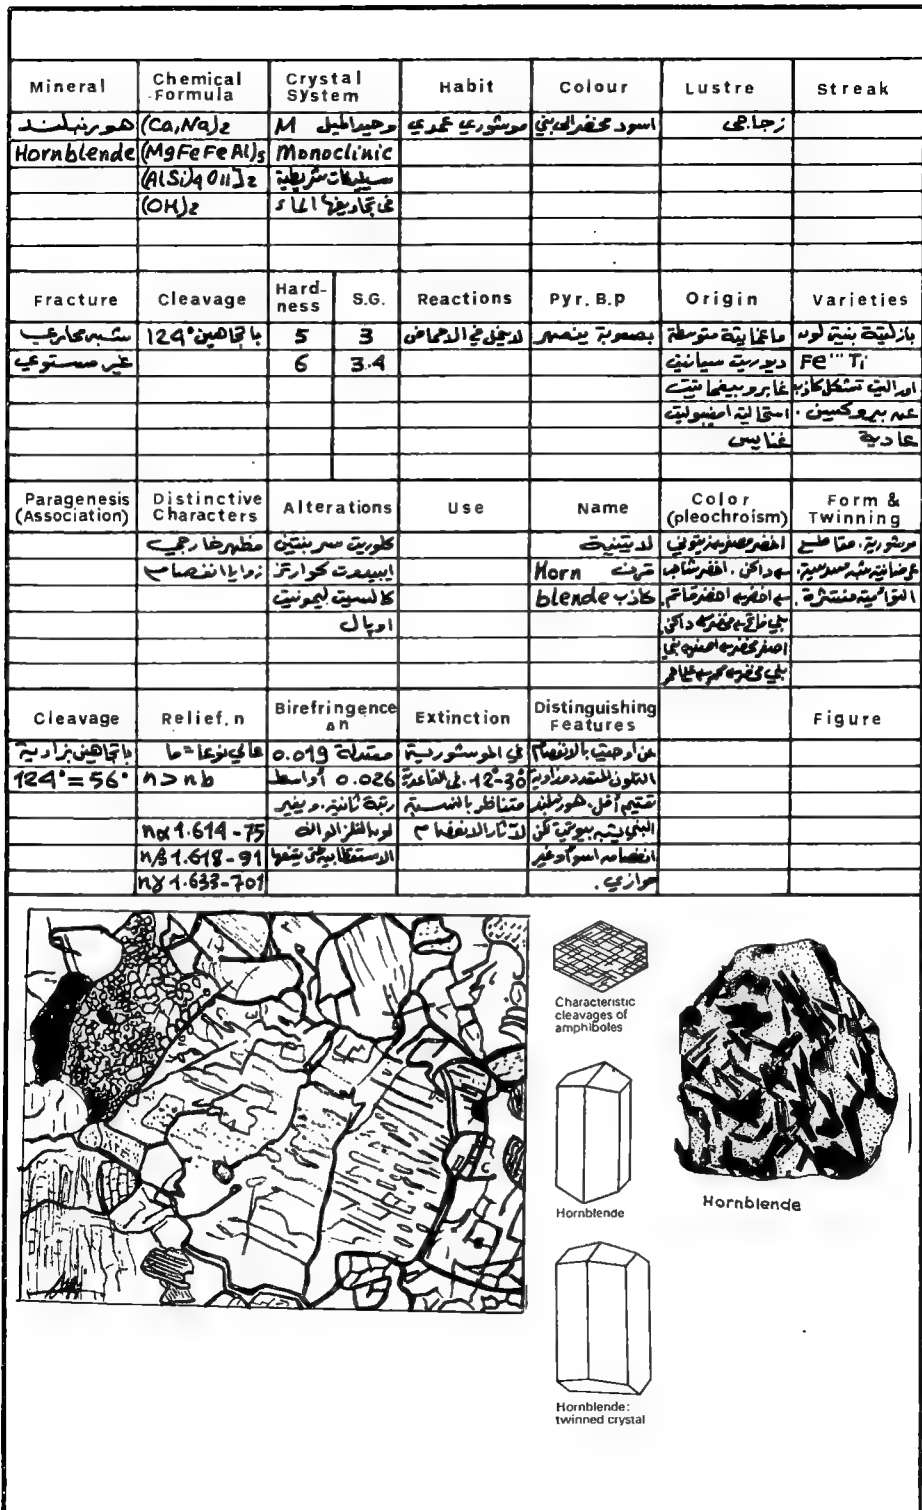 Mineral Chemical Formula Crystal System Habit Colour Lustre Streak
هورنبلند (Ca,Na)2 وحيد الميل M موشوري عمدي اسود مخضر الى بني زجاجي
Hornblende (MgFeFeAl)5 Monoclinic
(AlSi)4O11]2 سيليكات شريطية
(OH)2 في تجاويفها الماء
Fracture Cleavage Hardness S.G. Reactions Pyr. B.P Origin Varieties
شبه محاري باتجاهين 124° 5 3 لا يحل في الاحماض بصعوبة ينصهر ماغماتية متوسطة بازلتية بنية لون
غير مستوي 6 3.4 ديوريت سيانيت Fe''' Ti
غابرو بيغماتيت اوراليت تشكل كاذب
استحالية امفيبوليت عن بيروكسين.
غنايس عادية
Paragenesis (Association) Distinctive Characters Alterations Use Name Color (pleochroism) Form & Twinning
مظهر خارجي كلوريت سربنتين لاتينية اخضر مصفر زيتوني موشورية. مقاطع
زوايا انفصام ايبيدوت كوارتز Horn قرن داكن. اخضر شاحب عرضانية شبه سدسية.
كالسيت ليمونيت blende كاذب اخضر اخضر قاتم. التوائمية منتشرة.
اوبال بني فاتح مخضر داكن
اصفر مخضر اصفر بني
بني مخضر محمر
Cleavage Relief. n Birefringence Δn Extinction Distinguishing Features Figure
باتجاهين بزاوية عالي نوعا ما معتدلة 0.019 في الموشورية عن اوجيت بالانفصام
124° = 56° n > nb 0.026 أواسط 12°-30° في القاعدية التلون المتعدد وزاوية
رتبة ثانية. ويغير متناظر بالنسبة هورنبلند
nα 1.614-75 لون الفلز لآثار الانفصام البني يشبه بيوتيت لكن
nβ 1.618-91 الاستقطابية انفصامه اسوأ وغير
nγ 1.633-701 موازي.
Characteristic
cleavages of
amphiboles
Hornblende
Hornblende
Hornblende:
twinned crystal